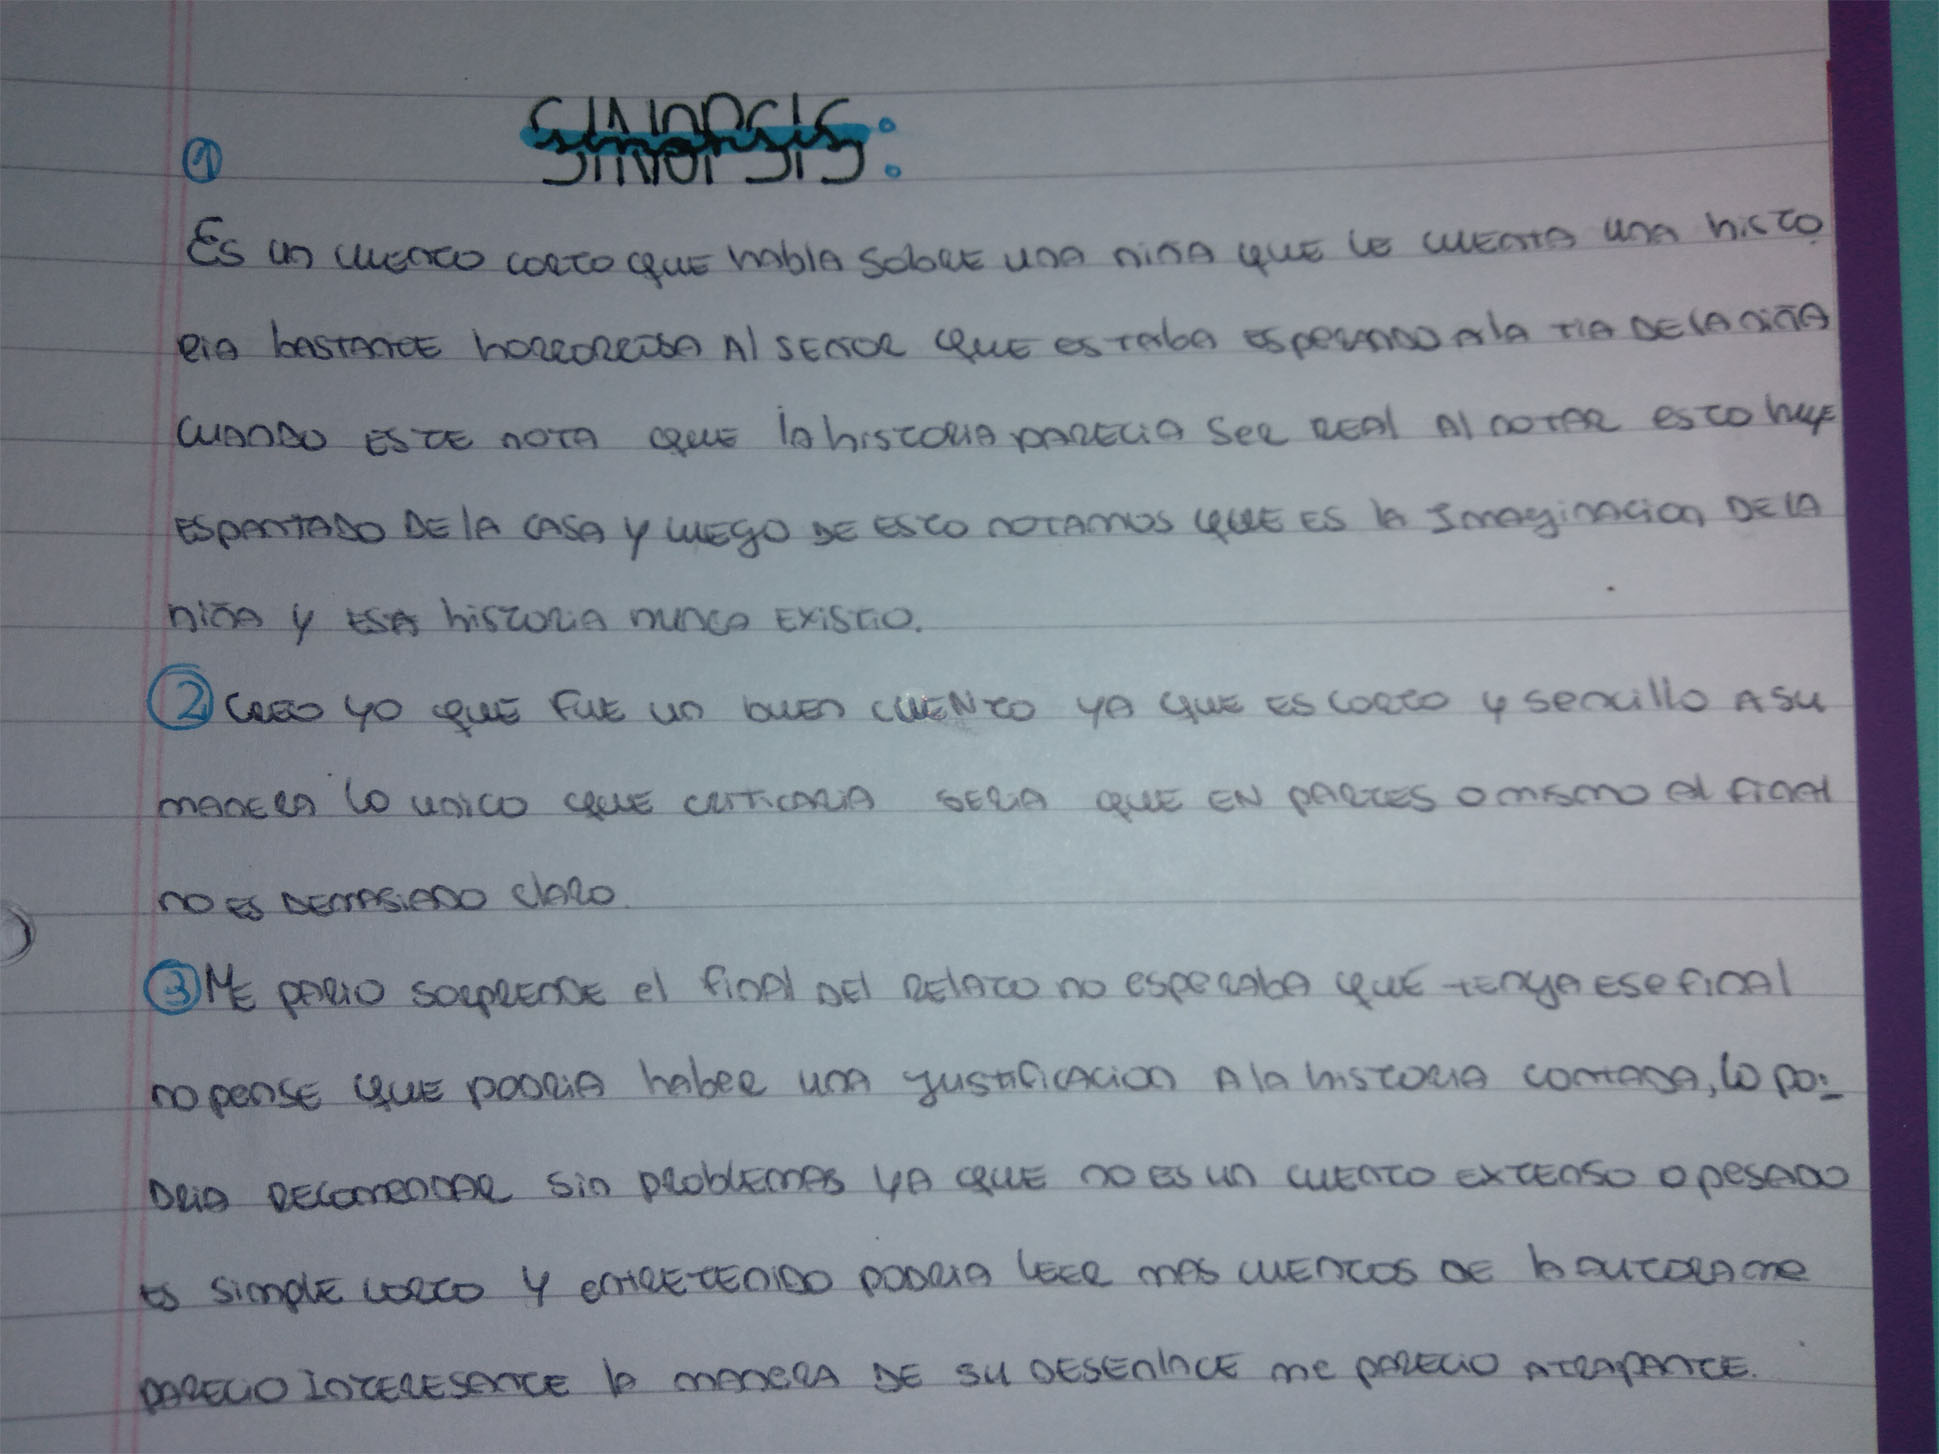 SINOPSIS:
1
Es un cuento corto que habla sobre una niña que le cuenta una histo
ria bastante horrorosa al señor que estaba esperando a la tia de la niña
cuando este nota que la historia parecia ser real al notar esto huye
espantado de la casa y luego de esto notamos que es la Imaginacion de la
niña y esa historia nunca existio.
2 creo yo que fue un buen cuento ya que es corto y sencillo a su
manera lo unico que criticaria seria que en partes o mismo el final
no es demasiado claro.
3 Me pario sorprende el final del relato no esperaba que tenga ese final
no pense que podria haber una justificacion a la historia contada, lo po-
dria recomendar sin problemas ya que no es un cuento extenso o pesado
es simple corto y entretenido podria leer mas cuentos de la autora me
parecio interesante la manera de su desenlace me parecio atrapante.